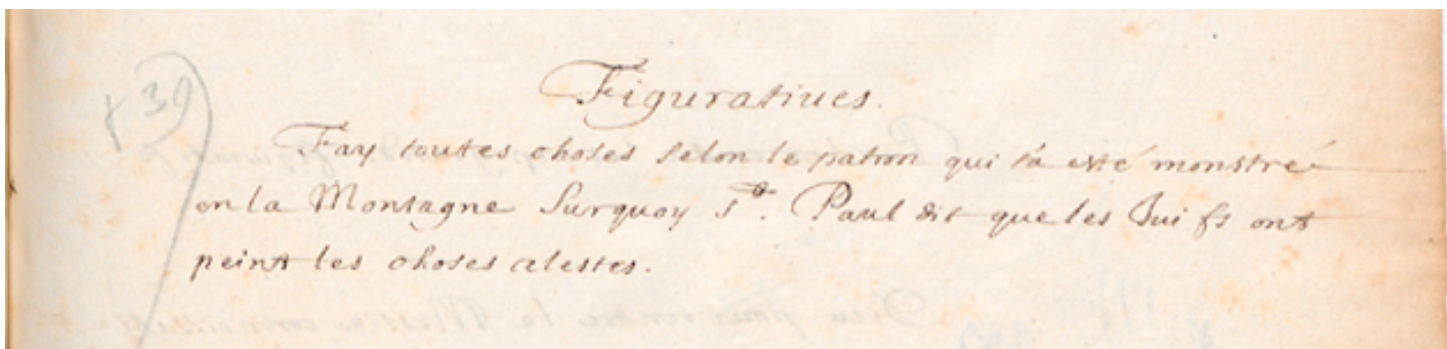 +39
Figuratiues.
Fay toutes choses selon le patron qui t'a esté monstré
en la Montagne Surquoy St. Paul dit que les Juifs ont
peint les choses celestes.